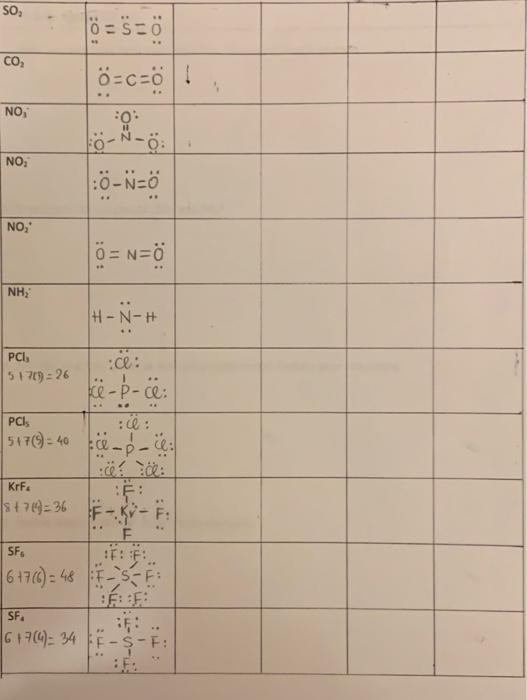 SO₂
Ö=S̈=Ö
CO₂
Ö=C=Ö
NO₃⁻
:O:
||
:Ö-N-Ö:
NO₂⁻
:Ö-N̈=Ö
NO₂⁺
Ö=N=Ö
NH₂⁻
H-N̈-H
PCl₃
:Cl:
5+7(3)=26
:Cl-P-Cl:
PCl₅
:Cl:
5+7(5)=40
:Cl-P-Cl:
:Cl: :Cl:
KrF₄
:F:
8+7(4)=36
:F-Kr-F:
F
SF₆
:F: :F:
6+7(6)=48
:F-S-F:
:F: :F:
SF₄
:F:
6+7(4)=34
:F-S-F:
:F: